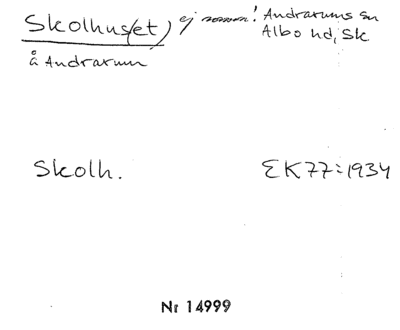 Skolhus(et) ej namn! Andrarums sn
Albo hd, Sk
å Andrarum
Skolh. EK77:1934
Nr 14999